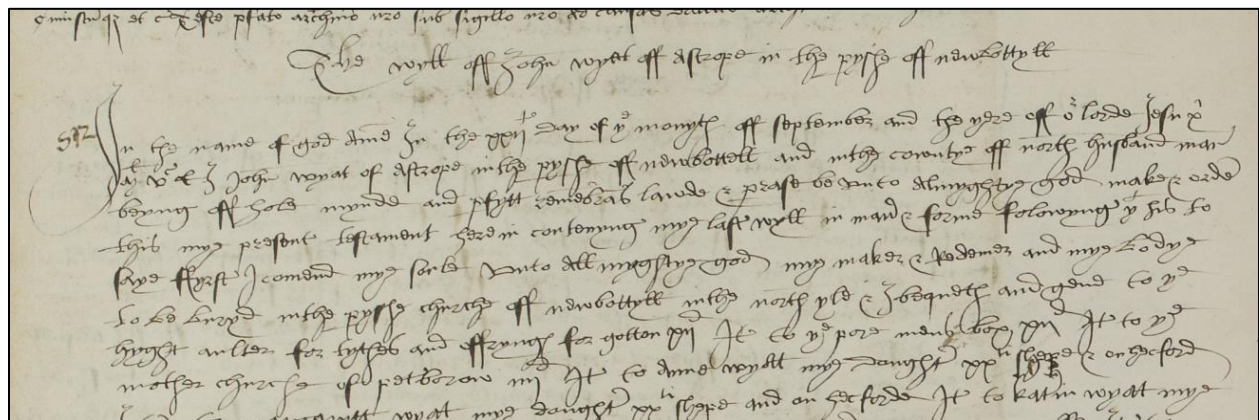 The wyll off John wyatt off Astrope in the pyshe off newbottyll
In the name of god Amē In the xxij day of yᵉ monyth off September and the yere off oʳ lorde Jesu
I John wyat of Astrope in the pyshe off newbottell and in the cowntye off north husband man
beyng off hole mynde and pfytt remēbrās lawde & prase be vnto Almyghtye god make & ordē
this mye present testament here in conteynyng mye last wyll in man & forme folowyng yᵗ his to
saye ffyrst I comend mye sowle vnto All myghtye god mye maker & Redemer and mye bodye
to be buryd in the pyshe churche off newbottyll in the north yle & I bequeth and geue to yᵉ
hyght aulter for tythes and offryngs for gotton xijᵈ It to yᵉ pore mens box xijᵈ It to yᵉ
mother churche of petborow iiijᵈ It to Anne wyatt mye dought xxᵗⁱ shepe & on hecford
wyat mye dought xxᵗⁱ shepe and on hecforde It to katin wyat mye